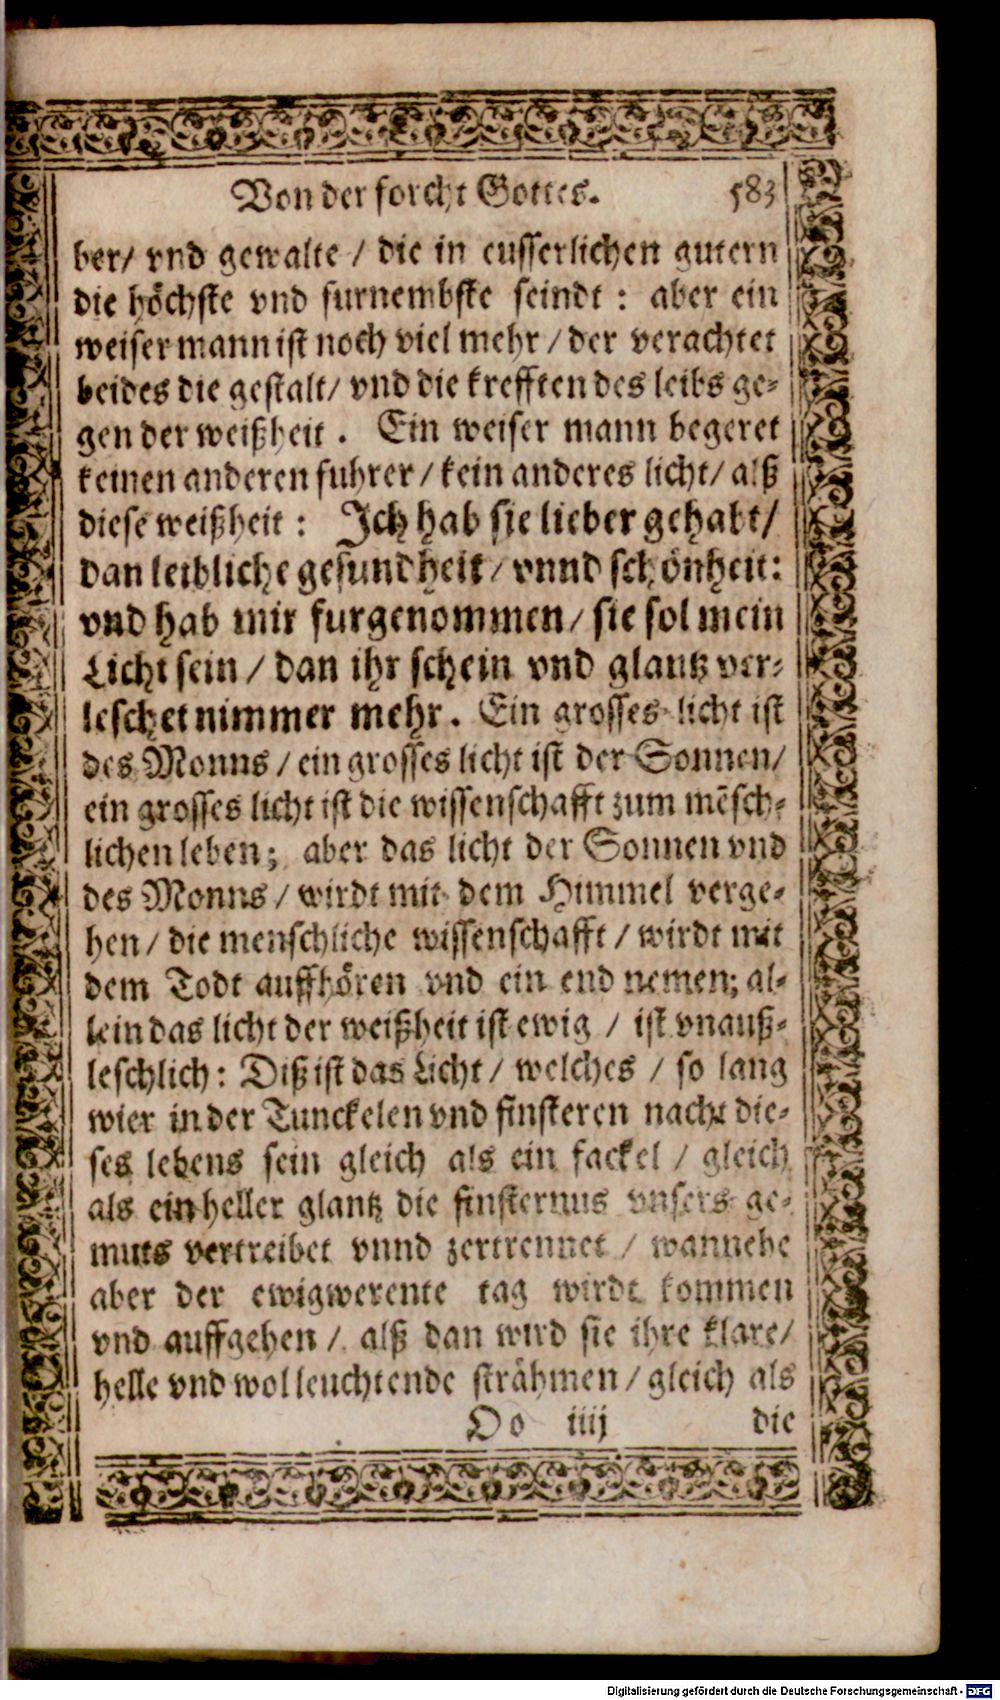 Von der forcht Gottes. 583
ber/ vnd gewalte / die in eusserlichen gutern
die höchste vnd furnembste seindt : aber ein
weiser mann ist noch viel mehr / der verachtet
beides die gestalt/ vnd die krefften des leibs ge-
gen der weißheit . Ein weiser mann begeret
keinen anderen fuhrer / kein anderes licht/ alß
diese weißheit : Ich hab sie lieber gehabt/
dan leibliche gesundheit / vnnd schönheit:
vnd hab mir furgenommen/ sie sol mein
Licht sein / dan ihr schein vnd glantz ver-
leschet nimmer mehr. Ein grosses licht ist
des Monns / ein grosses licht ist der Sonnen/
ein grosses licht ist die wissenschafft zum mẽsch-
lichen leben; aber das licht der Sonnen vnd
des Monns / wirdt mit dem Himmel verge-
hen / die menschliche wissenschafft / wirdt mit
dem Todt auffhören vnd ein end nemen; al-
lein das licht der weißheit ist ewig / ist vnauß-
leschlich: Diß ist das Licht / welches / so lang
wier in der Tunckelen vnd finsteren nacht die-
ses lebens sein gleich als ein fackel / gleich
als ein heller glantz die finsternus vnsers ge-
muts vertreibet vnnd zertrennet / wannehe
aber der ewigwerente tag wirdt kommen
vnd auffgehen / alß dan wird sie ihre klare/
helle vnd wolleuchtende strähmen / gleich als
Oo iiij die
Digitalisierung gefördert durch die Deutsche Forschungsgemeinschaft - DFG